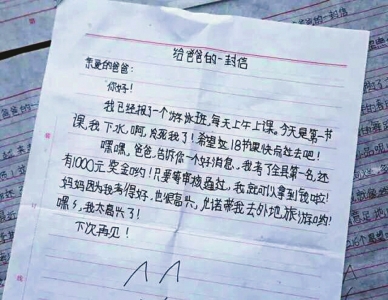 给爸爸的一封信
亲爱的爸爸:
你好!
我已经报了一个游泳班,每天上午上课。今天是第一节
课,我下水,啊,
我了!希望这18节课快点过去吧!
嘿嘿,爸爸,告诉你一个好消息,我考了全县第一名,还
有1000元奖金哟!只要等审核通过,我就可以拿到钱啦!
妈妈因为我考得好,也很高兴,允诺带我去外地旅游哟!
嘿,我太高兴了!
下次再见!